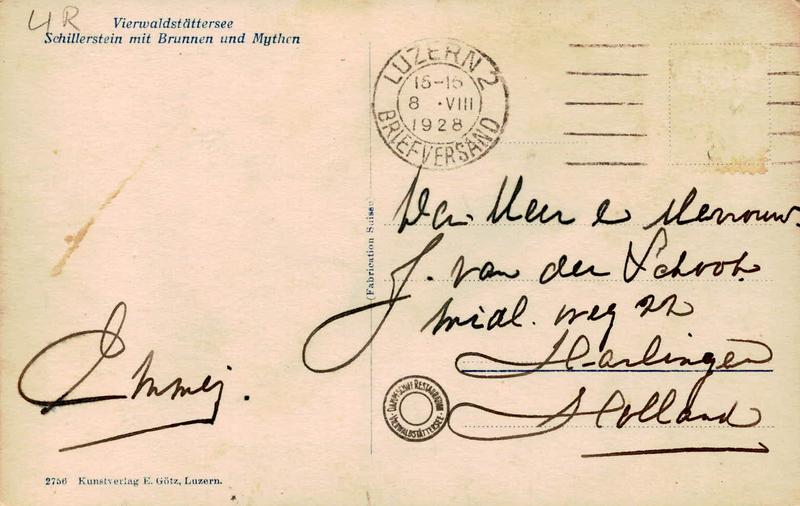 4R
Vierwaldstättersee
Schillerstein mit Brunnen und Mythen
LUZERN 2
15-16
8 · VIII
1928
BRIEFVERSAND
(Fabrication Suisse
Den Heer e Mevrouw.
J. van der School
midl. weg 22
Harlingen
Holland
Emmy.
DAMPFSCHIFF RESTAURATION
VIERWALDSTÄTTERSEE
2756 Kunstverlag E. Götz, Luzern.